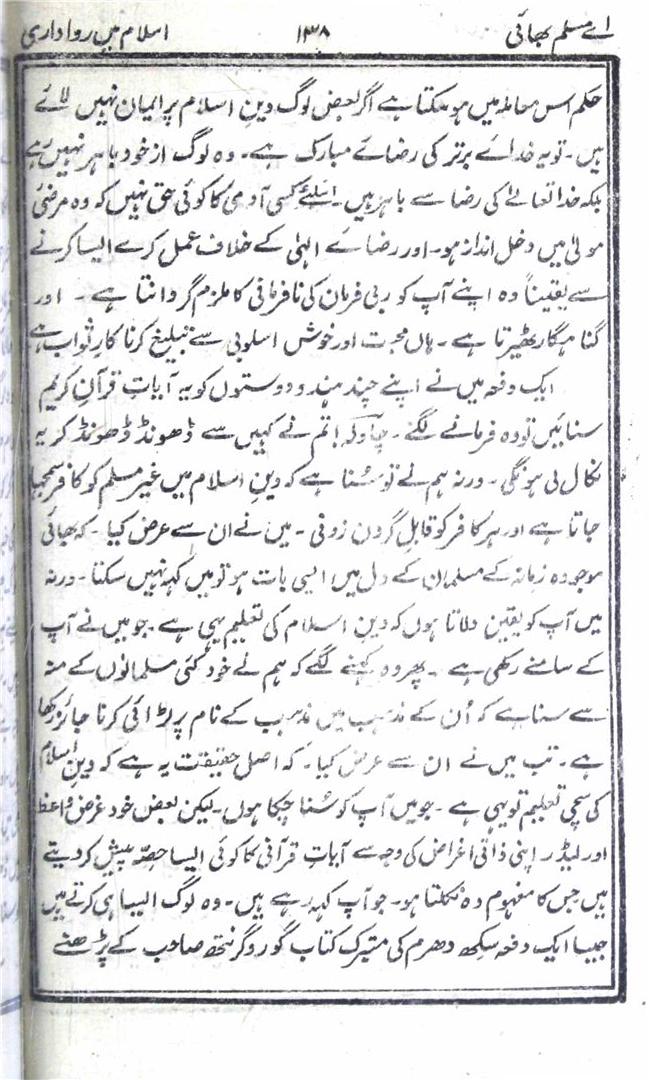 اے مسلم بھائی ۱۳۸ اسلام میں رواداری
حکم اس معاملہ میں ہو سکتا ہے اگر بعض لوگ دینِ اسلام پر ایمان نہیں لائے
ہیں۔ تو یہ خدائے برتر کی رضائے مبارک ہے۔ وہ لوگ از خود باہر نہیں رہے
بلکہ خدا تعالےٰ کی رضا سے باہر ہیں۔ اسلئے کسی آدمی کا کوئی حق نہیں کہ وہ مرضیٔ
مولیٰ میں دخل انداز ہو۔ اور رضائے الہٰی کے خلاف عمل کرے ایسا کرنے
سے یقیناً وہ اپنے آپ کو ربی فرمان کی نافرمانی کا ملزم گردانتا ہے۔ اور
گناہگار ٹھیرتا ہے۔ ہاں محبت اور خوش اسلوبی سے تبلیغ کرنا کارِ ثواب ہے
ایک دفعہ میں نے اپنے چند ہندو دوستوں کو یہ آیاتِ قرآن کریم
سنائیں تو وہ فرمانے لگے۔ تم نے کہیں سے ڈھونڈ ڈھونڈ کر یہ
نکال لی ہونگی۔ ورنہ ہم نے تو سُنا ہے کہ دینِ اسلام میں غیر مسلم کو کافر سمجھا
جاتا ہے اور ہر کافر کو قابلِ گردن زونی۔ میں نے ان سے عرض کیا۔ کہ بھائی
موجودہ زمانہ کے مسلمان کے دل میں ایسی بات ہو تو میں کہہ نہیں سکتا۔ ورنہ
میں آپ کو یقین دلاتا ہوں کہ دینِ اسلام کی تعلیم یہی ہے۔ جو میں نے آپ
کے سامنے رکھی ہے۔ پھر وہ کہنے لگے کہ ہم نے خود کئی مسلمانوں کے منہ
سے سنا ہے کہ اُن کے مذہب میں مذہب کے نام پر لڑائی کرنا جائز رکھا
ہے۔ تب میں نے ان سے عرض کیا۔ کہ اصل حقیقت یہ ہے کہ دینِ اسلام
کی سچی تعلیم تو یہی ہے۔ جو میں آپ کو سُنا چکا ہوں۔ لیکن بعض خود غرض واعظ
اور لیڈر اپنی ذاتی اغراض کی وجہ سے آیاتِ قرآنی کا کوئی ایسا حصّہ پیش کر دیتے
ہیں جس کا مفہوم وہ نکلتا ہو۔ جو آپ کہہ رہے ہیں۔ وہ لوگ ایسا ہی کرتے ہیں
جیسا ایک دفعہ سکھ دھرم کی متبرک کتاب گورو گرنتھ صاحب کے پڑھنے